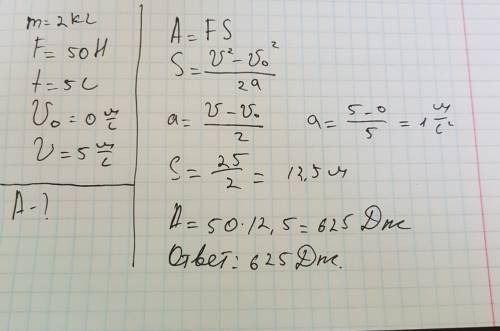 m = 2 кг
F = 50 Н
t = 5 с
υ₀ = 0 м/с
υ = 5 м/с
A - ?
A = FS
S = (υ² - υ₀²)/2a
a = (υ - υ₀)/2   a = (5 - 0)/5 = 1 м/с²
S = 25/2 = 12,5 м
A = 50 · 12,5 = 625 Дж
Ответ: 625 Дж.